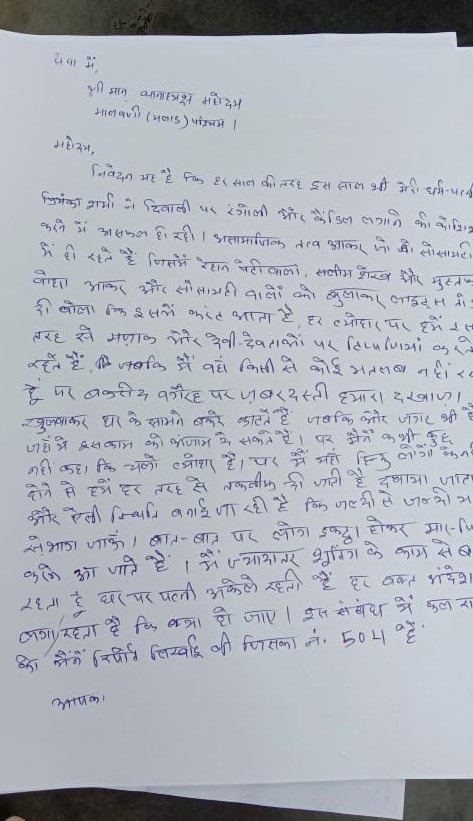 सेवा में,
श्री मान् थानाध्यक्ष महोदय
मालवणी (मलाड) पश्चिम।
महोदय,
निवेदन यह है कि हर साल की तरह इस साल भी मेरी धर्म-पत्नी
शर्मा ने दिवाली पर रंगोली और कैंडिल लगाने की कोशिश
करने में असफल ही रही। असामाजिक तत्व आकर जो सोसायटी
में ही रहते हैं जिसमें रेहान पेटीवाला, सलीम शेख और
आकर और सोसायटी वालों को बुलाकर लाइट्स
बोला कि इसमें करंट आता है, हर त्योहार पर हमें इस
तरह से मजाक और देवी-देवताओं पर टिप्पणियां करते
रहते हैं, जबकि मैं वहां किसी से कोई मतलब नहीं
हूँ पर बकरीद वगैरह पर जबरदस्ती हमारा दरवाजा
खुलवाकर घर के सामने बकरे काटते हैं जबकि और जगह भी है
जहाँ वे इस काम को अंजाम दे सकते हैं। पर मैंने कभी कुछ
नहीं कहा कि चलो त्योहार है। पर में वहाँ हिन्दु लोगों
होने से हमें हर तरह से तकलीफ दी जाती है दबाया जाता
और ऐसी स्थिति बनाई जा रही है कि जल्दी से जल्दी
से भाग जाऊँ। बात-बात पर लोग इकट्ठा होकर
करने आ जाते हैं। मैं ज्यादातर शूटिंग के काम से
रहता हूँ घर पर पत्नी अकेले रहती है हर वक्त अंदेशा
लगा रहता है कि क्या हो जाए। इस संबंध में कल
को मैंने रिपोर्ट लिखाई थी जिसका नं. 504 है
आपका